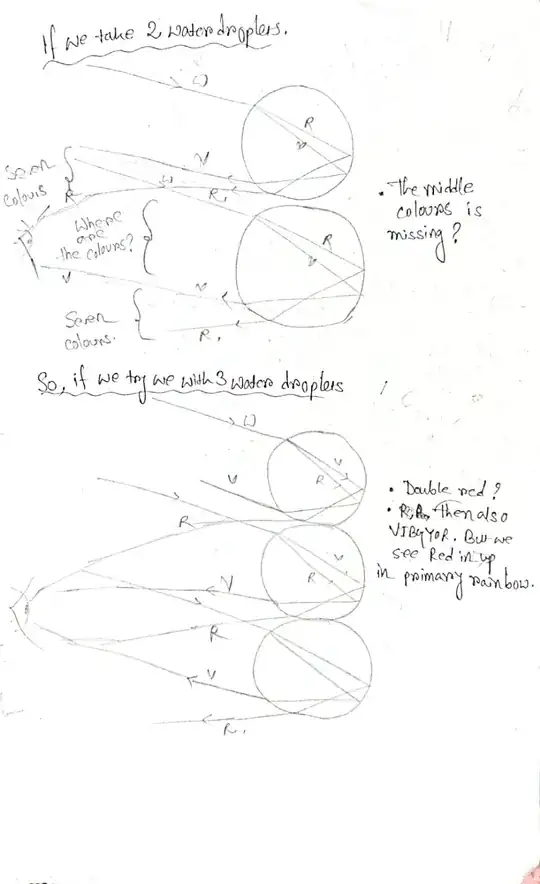 If we take 2 water droplers.
W
R
V
Seven
colours
V
W
R
R,
Where
are
the colours?
R
V
V
V
Seven
colours.
R,
• The middle
colours is
missing?
So, if we try we with 3 water droplers
W
V
R
V
R
V
R
V
R
V
R,
• Double red?
• Then also
VIBGYOR. But we
see Red in up
in primary rainbow.